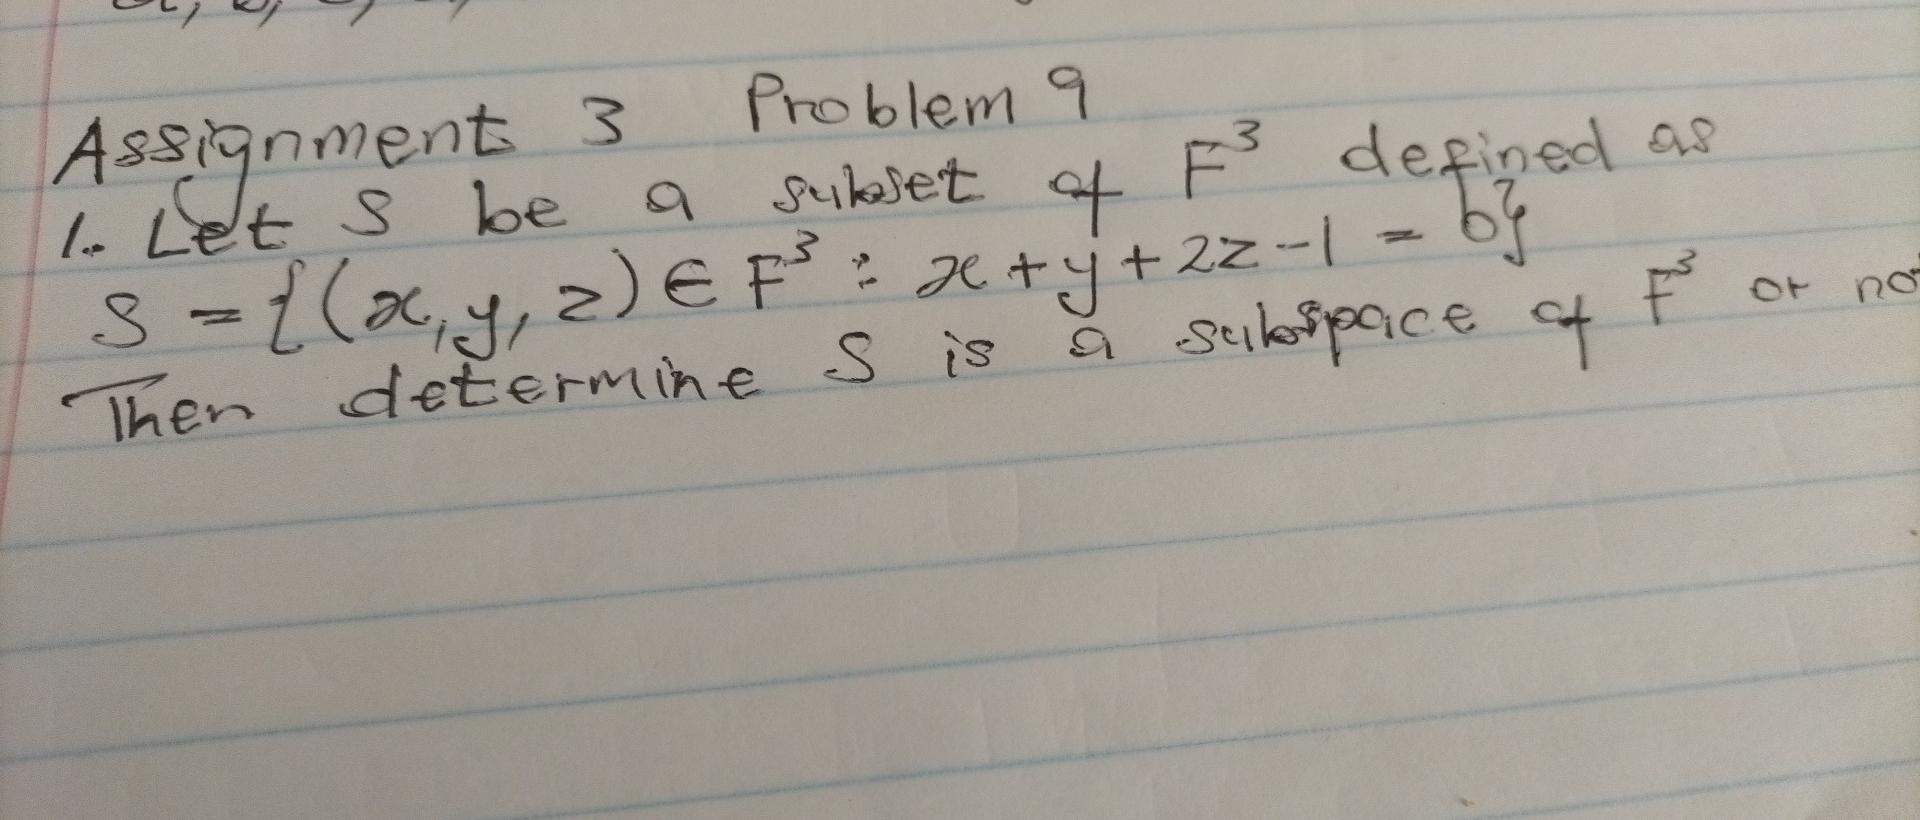 Assignment 3 Problem 9
1. Let S be a subset of F³ defined as
S = {(x, y, z) ∈ F³ : x + y + 2z - 1 = b}
Then determine S is a subspace of F³ or not